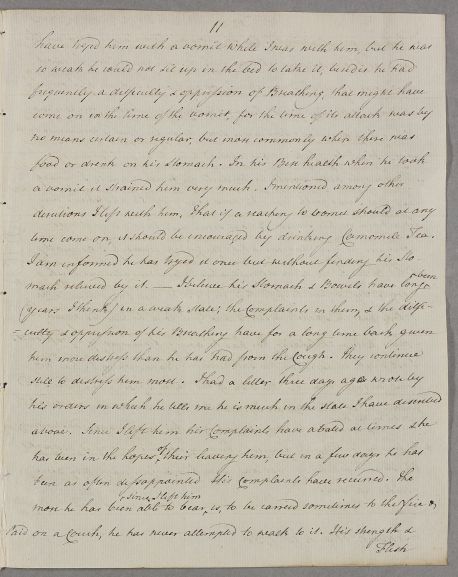 11
have tryed him with a vomit while I was with him, but he was
so weak he could not sit up in the bed to take it, besides he had
frequently a difficulty & oppression of Breathing, that might have
come on in the time of the vomit, for the time of its attack was by
no means certain or regular, but more commonly when there was
food or drink on his Stomach. In his Best health when he took
a vomit it strained him very much. I mentioned among other
directions I left with him, That if a reaching to vomit should at any
time come on, it should be encouraged by drinking Camomile Tea.
I am informed he has tryed it once but without finding his Sto
mach relieved by it. — I believe his Stomach & Bowels have long been
(years I think) in a weak State; the Complaints in them, & the diffi-
=culty & oppression of his Breathing have for a long time back given
him more distress than he has had from the Cough. They continue
still to distress him most. I had a letter three days ago wrote by
his orders in which he tells me he is much in the state I have described
above. Since I left him his Complaints have abated at times & he
has been in the hopes of their leaving him, but in a few days he has
been as often disappointed His Complaints have recurred. The
most he has been able to bear, since I left him, is, to be carried sometimes to the fire &
laid on a Couch, he has never attempted to walk to it. His strength &
Flesh